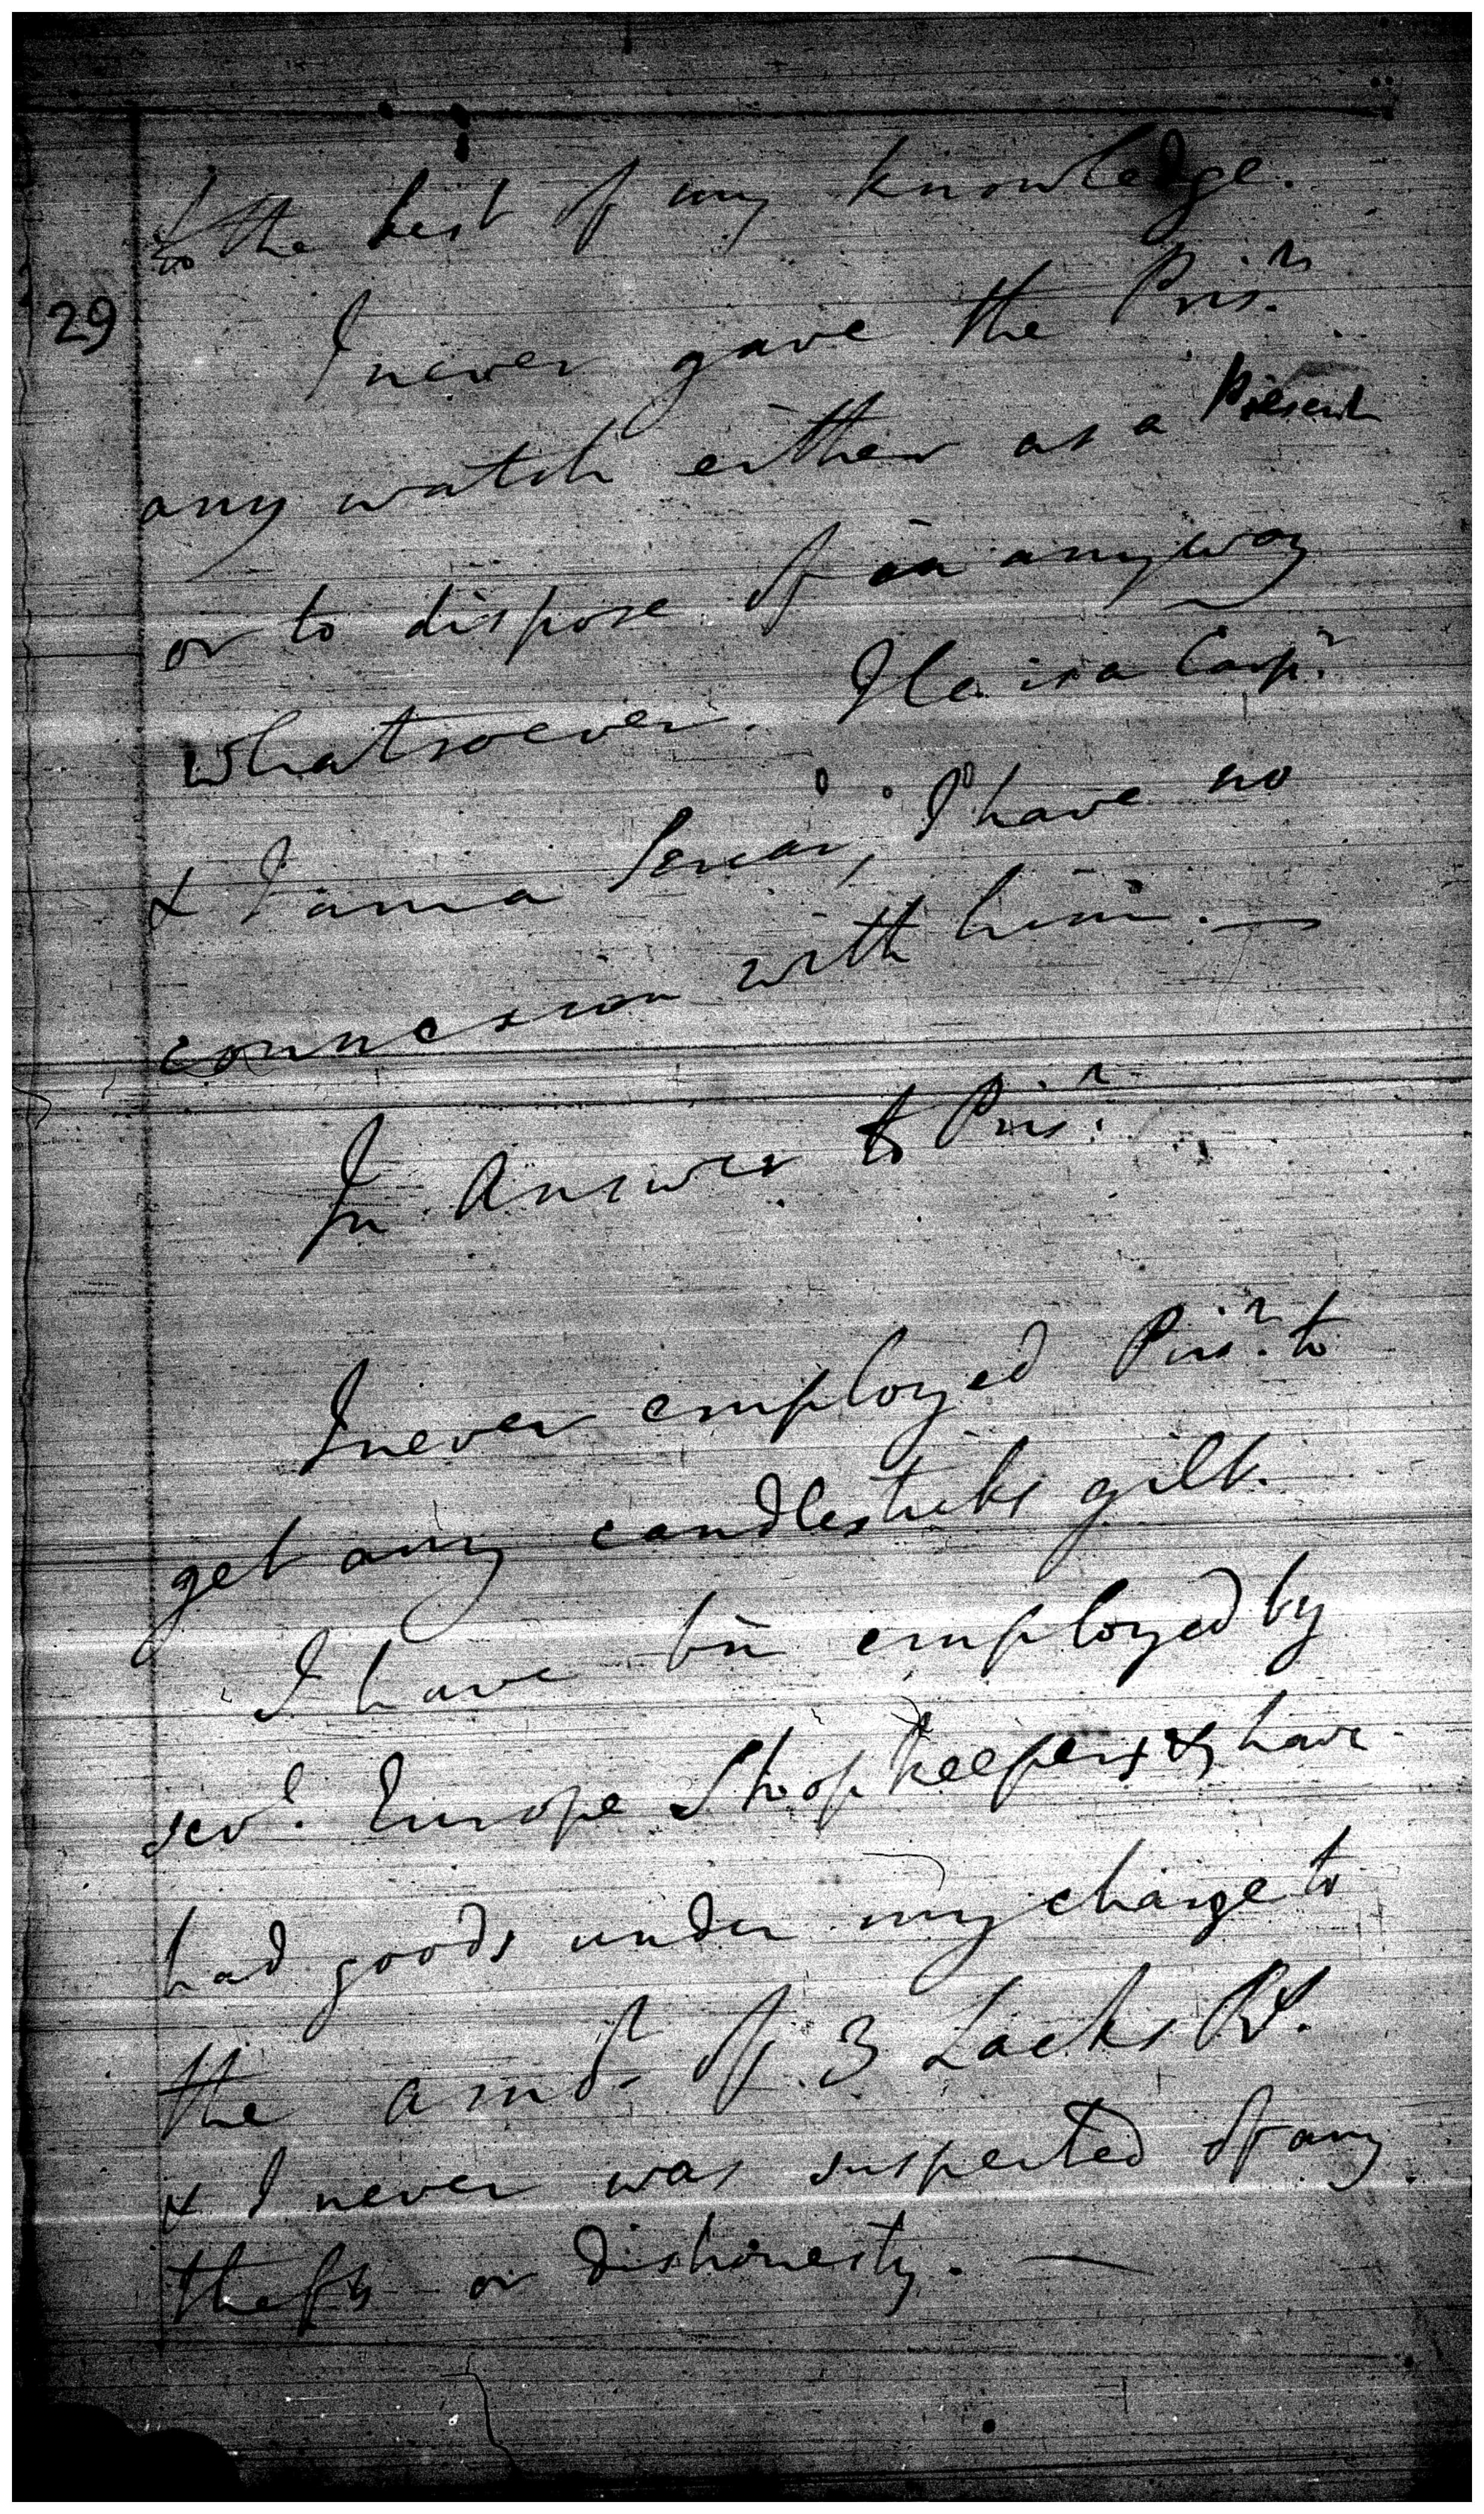 to the best of my knowledge.
29
I never gave the Pris.r
any watch either as a Present
or to dispose of in any way
whatsoever. He is a Carp.r
& I am a Sircar, I have no
connexion with him. —
In Answer to Pris.r
I never employed Pris.r to
get any candlesticks gilt.
I have bin employed by
sev.l Europe Shopkeepers & have
had goods under my charge to
the amot. of 3 Lacks Rs.
& I never was suspected of any
thefts or dishonesty. —